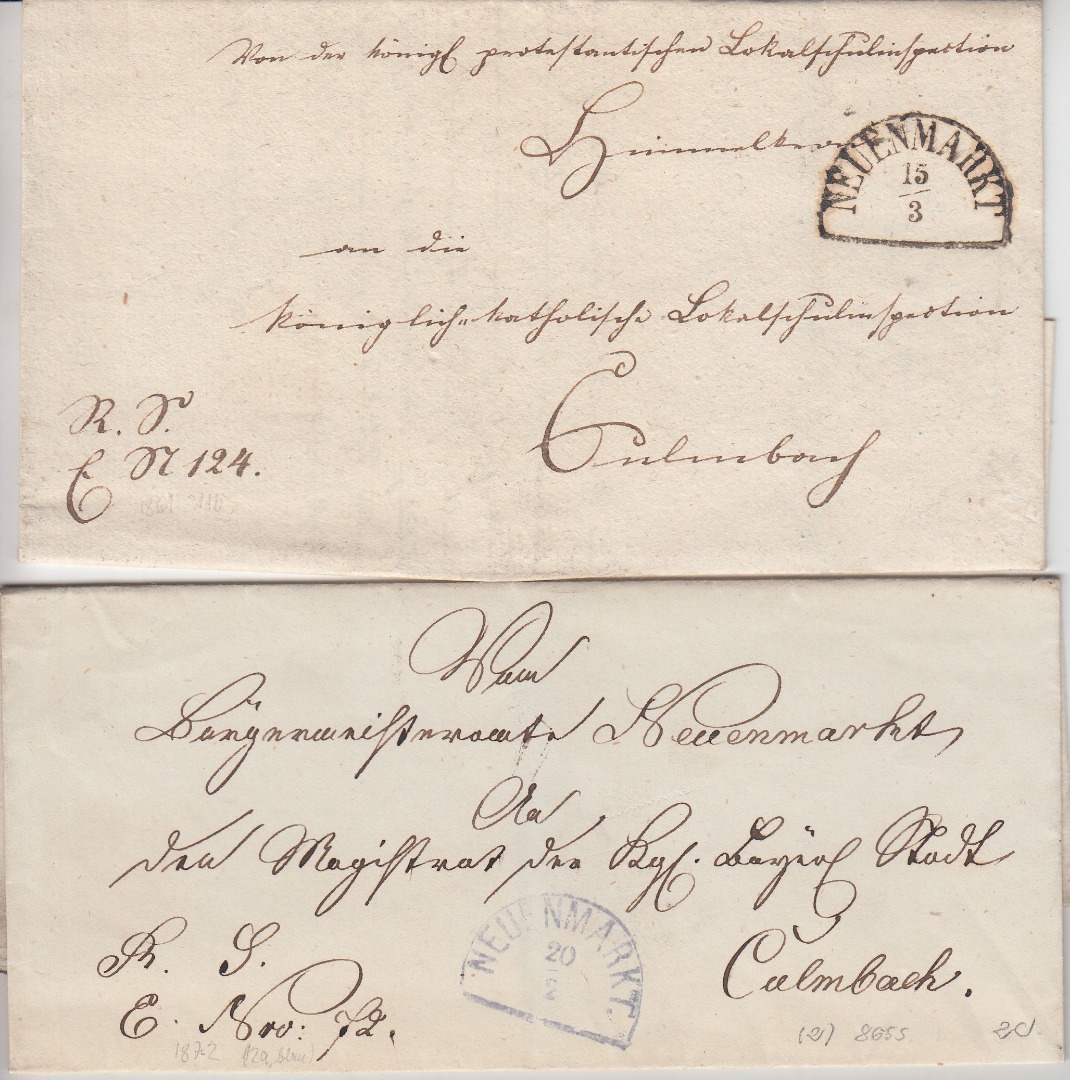 Von der königl protestantischen Lokalschulinspection
Himmelkron
NEUENMARKT
15
3
an die
königlich-katholische Lokalschulinspection
Culmbach
R. S.
E N 124.
Vom
Bürgermeisteramte Neuenmarkt
An
den Magistrat der Kgl. Bayer Stadt
NEUENMARKT.
20
2
Culmbach.
R. S.
E. Nro: 72.
1872
(21) 8655